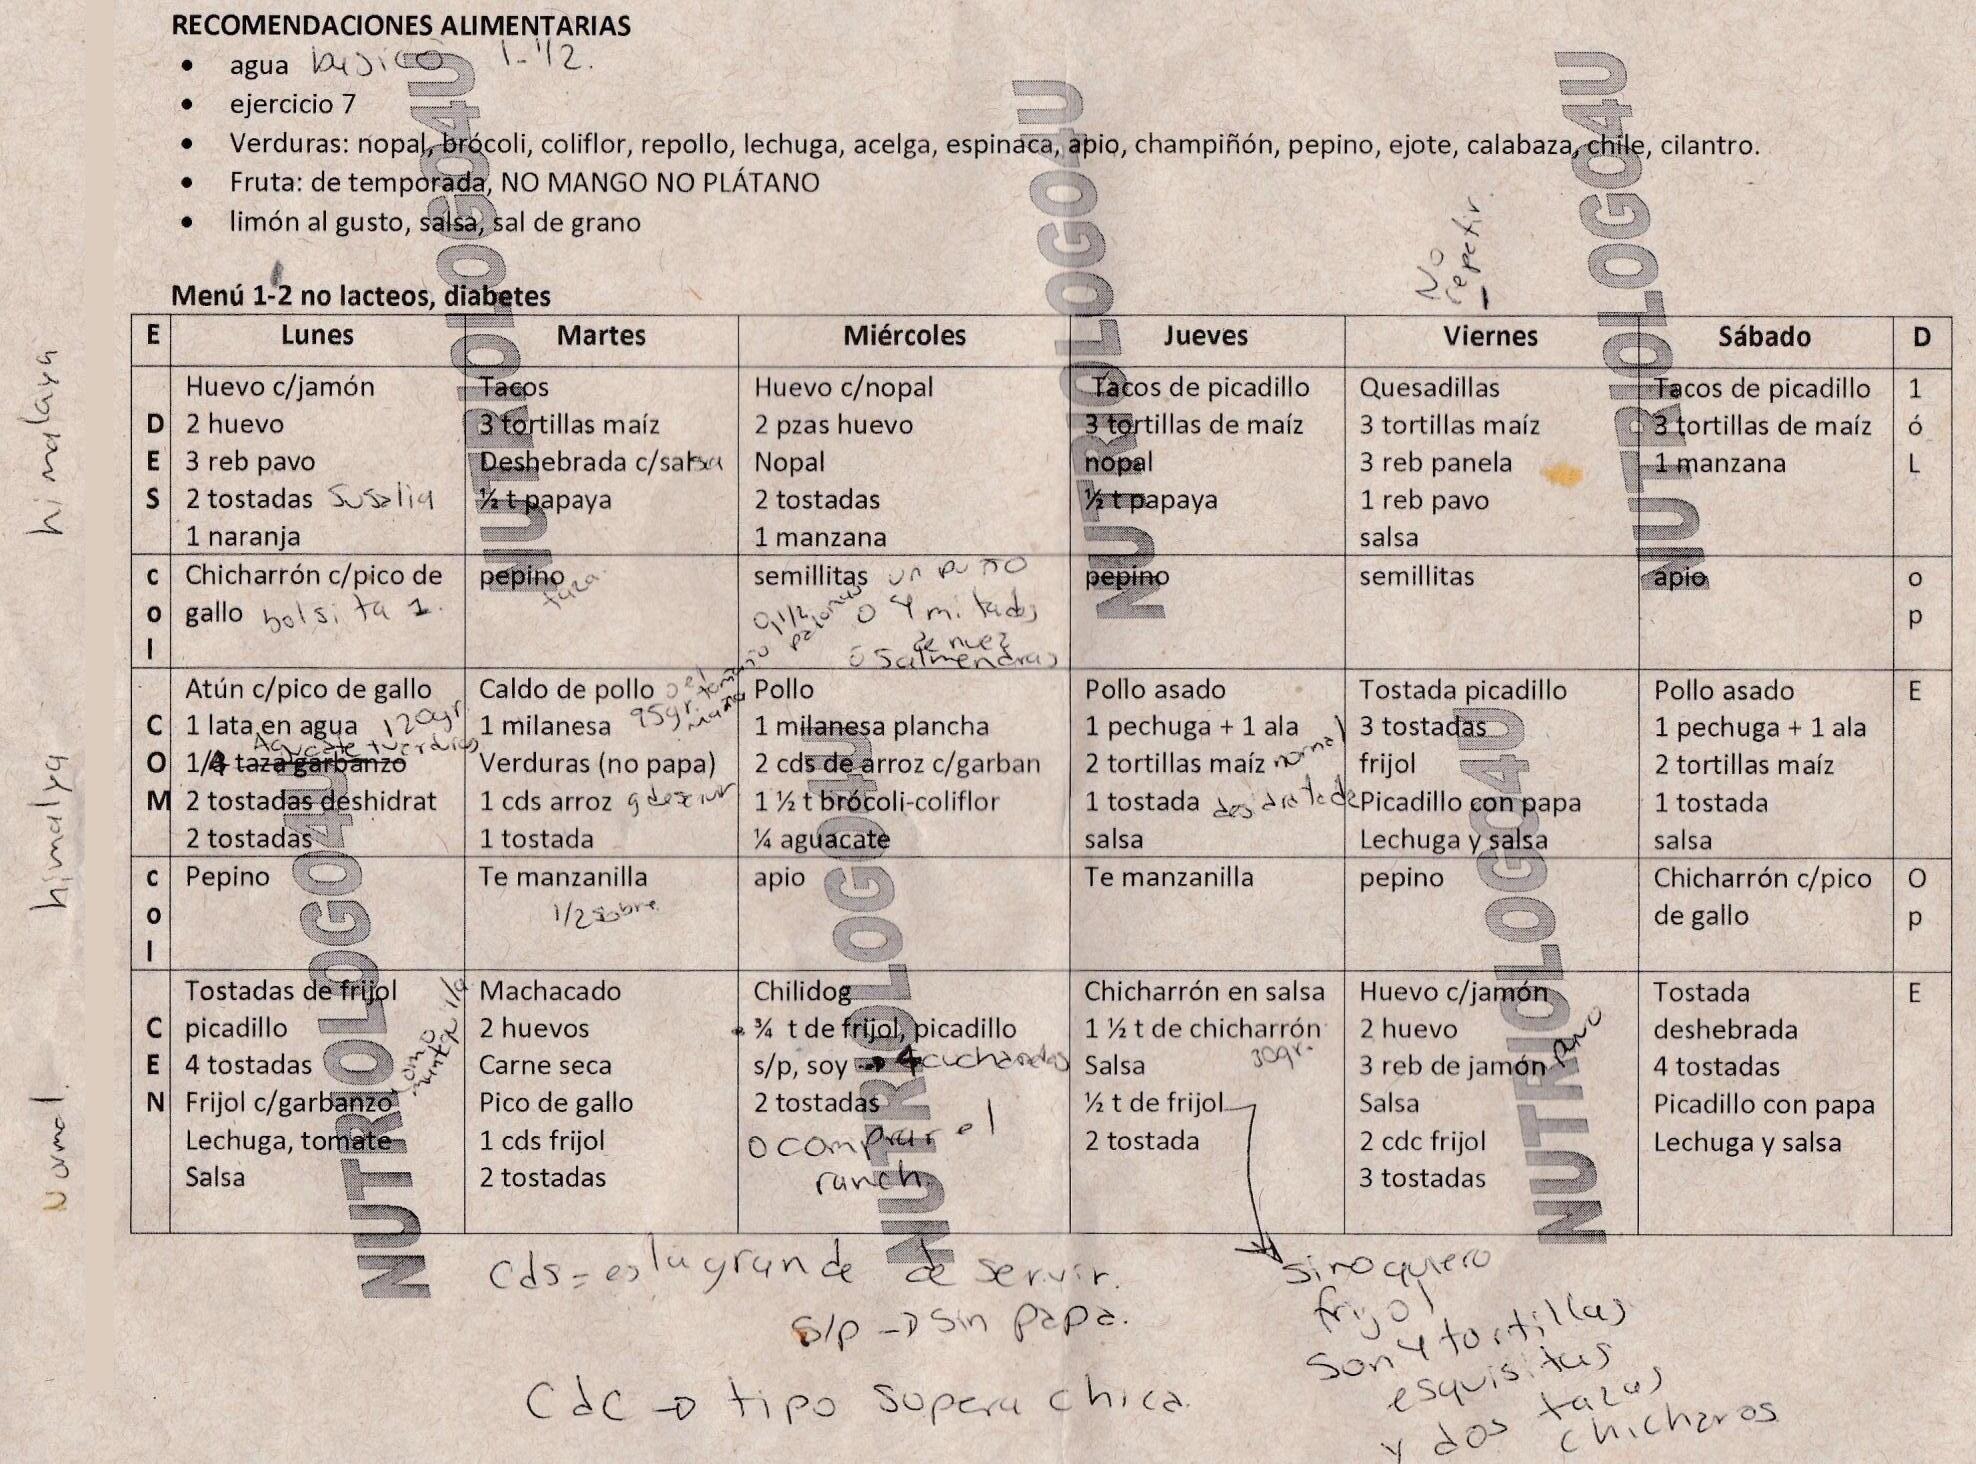 RECOMENDACIONES ALIMENTARIAS
• agua basico 1-1/2.
• ejercicio 7
• Verduras: nopal, brócoli, coliflor, repollo, lechuga, acelga, espinaca, apio, champiñón, pepino, ejote, calabaza, chile, cilantro.
• Fruta: de temporada, NO MANGO NO PLÁTANO
• limón al gusto, salsa, sal de grano
No repetir.
Menú 1-2 no lacteos, diabetes
E Lunes Martes Miércoles Jueves Viernes Sábado D
D E S
Huevo c/jamón
2 huevo
3 reb pavo
2 tostadas Susalia
1 naranja
Tacos
3 tortillas maíz
Deshebrada c/salsa
½ t papaya
Huevo c/nopal
2 pzas huevo
Nopal
2 tostadas
1 manzana
Tacos de picadillo
3 tortillas de maíz
nopal
½ t papaya
Quesadillas
3 tortillas maíz
3 reb panela
1 reb pavo
salsa
Tacos de picadillo
3 tortillas de maíz
1 manzana
1 ó L
c o l
Chicharrón c/pico de
gallo bolsita 1.
pepino
taza.
semillitas un puño
o 4 mitades
de nuez
ó 5 almendras
pepino
semillitas
apio
o p
C O M
Atún c/pico de gallo
1 lata en agua 120gr.
Aguacate + verduras
1/4 taza garbanzo
2 tostadas deshidrat
2 tostadas
Caldo de pollo
1 milanesa 95gr.
Verduras (no papa)
1 cds arroz
1 tostada
Pollo
1 milanesa plancha
2 cds de arroz c/garban
1 ½ t brócoli-coliflor
¼ aguacate
Pollo asado
1 pechuga + 1 ala
2 tortillas maíz normal
1 tostada desidratade
salsa
Tostada picadillo
3 tostadas
frijol
Picadillo con papa
Lechuga y salsa
Pollo asado
1 pechuga + 1 ala
2 tortillas maíz
1 tostada
salsa
E
c o l
Pepino
Te manzanilla
1/2 sobre
apio
Te manzanilla
pepino
Chicharrón c/pico
de gallo
O p
C E N
Tostadas de frijol
picadillo
4 tostadas
Frijol c/garbanzo
Lechuga, tomate
Salsa
Machacado
2 huevos
Carne seca
Pico de gallo
1 cds frijol
2 tostadas
Chilidog
¾ t de frijol, picadillo
s/p, soy → 4 cucharadas
2 tostadas
o comprar el
ranch.
Chicharrón en salsa
1 ½ t de chicharrón
30gr.
Salsa
½ t de frijol
2 tostada
Huevo c/jamón
2 huevo
3 reb de jamón pavo
Salsa
2 cdc frijol
3 tostadas
Tostada
deshebrada
4 tostadas
Picadillo con papa
Lechuga y salsa
E
Cds = es la grande de servir.
s/p → sin papa.
Cdc → tipo sopera chica.
si no quiero
frijol
son 4 tortillas
esquisitas
y dos tazas
chicharos
himalaya
himalya
Normal.
NUTRIOLOGO4U
NUTRIOLOGO4U
NUTRIOLOGO4U
NUTRIOLOGO4U
NUTRIOLOGO4U
NUTRIOLOGO4U